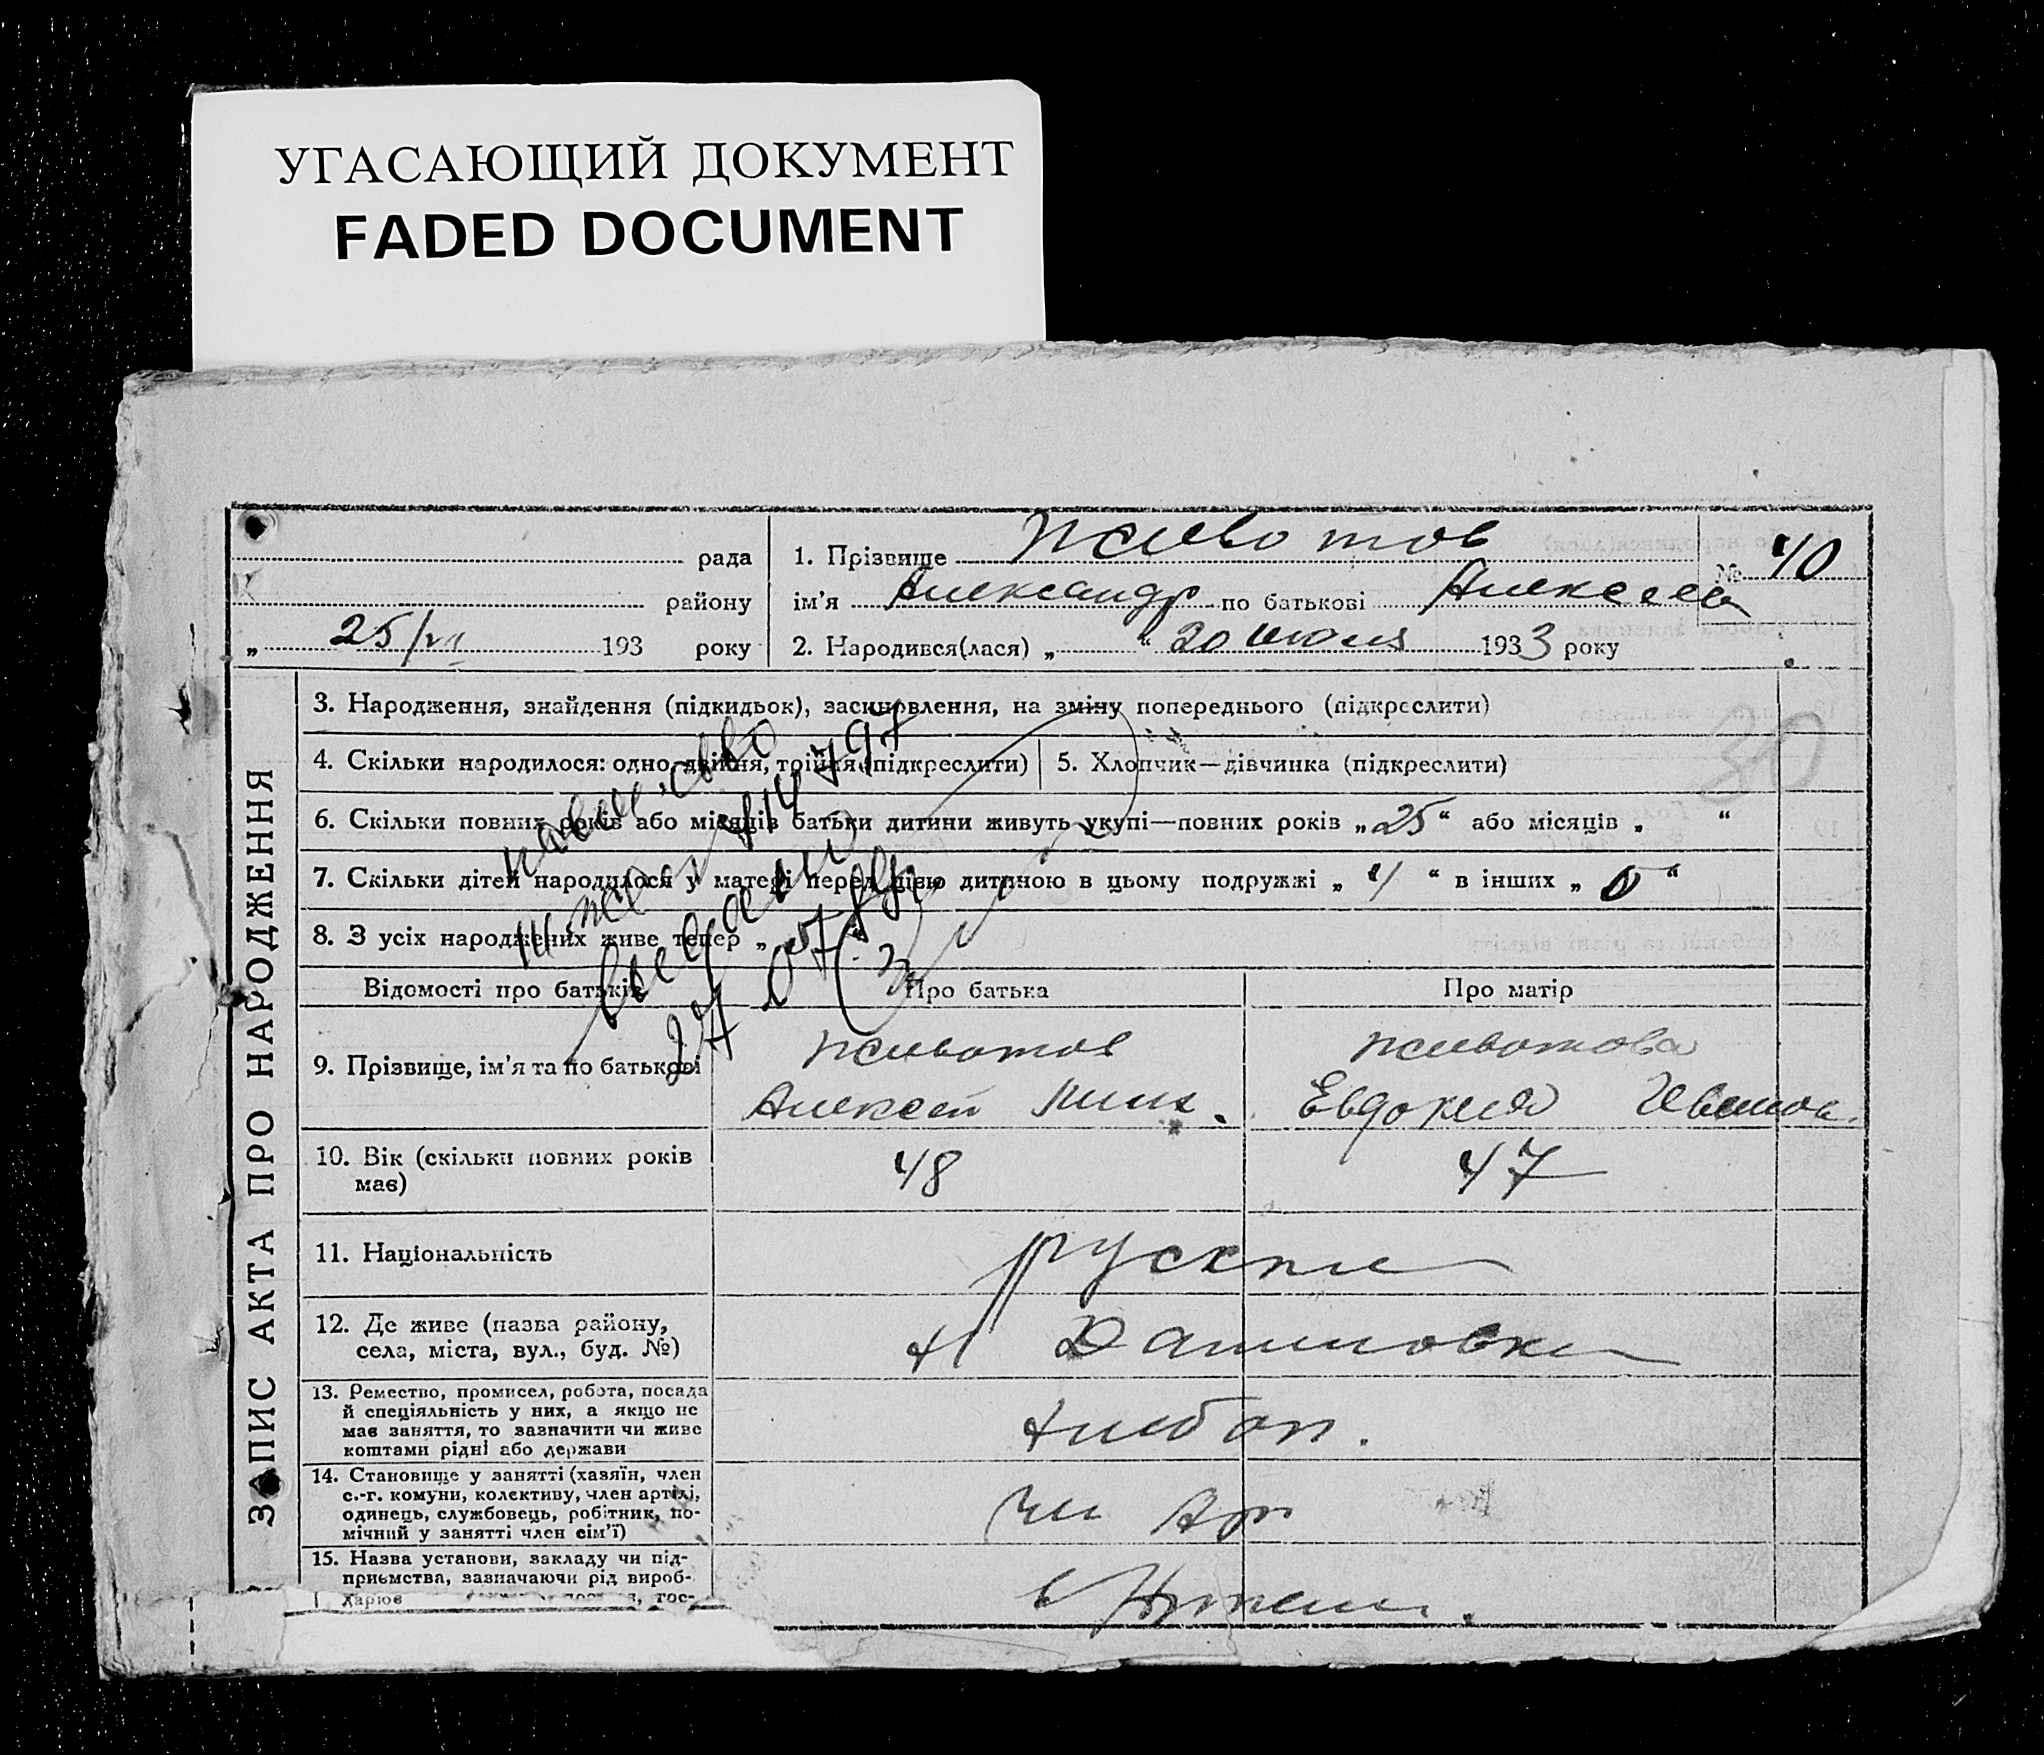 УГАСАЮЩИЙ ДОКУМЕНТ
FADED DOCUMENT
рада
району
„ 25/VII 193 року
1. Прізвище Животов
ім’я Александр по батькові Алексеев
2. Народився(лася) „ “ 20 июля 1933 року
№ 40
30
ЗАПИС АКТА ПРО НАРОДЖЕННЯ
3. Народження, знайдення (підкидьок), засиновлення, на зміну попереднього (підкреслити)
4. Скільки народилося: одно, двійня, трійня (підкреслити)
5. Хлопчик—дівчинка (підкреслити)
6. Скільки повних років або місяців батьки дитини живуть укупі—повних років „25“ або місяців „ “
7. Скільки дітей народилося у матері перед цією дитиною в цьому подружжі „4“ в інших „0“
8. З усіх народжених живе тепер „
Відомості про батьків
Про батька
Про матір
9. Прізвище, ім’я та по батькові
Животов
Алексей
Животова
Евдокия Иванов.
10. Вік (скільки повних років
має)
48
47
11. Національність
руские
12. Де живе (назва району,
села, міста, вул., буд. №)
13. Ремество, промисел, робота, посада
й спеціяльність у них, а якщо не
має заняття, то зазначити чи живе
коштами рідні або держави
хлебоп.
14. Становище у занятті (хазяїн, член
с.-г. комуни, колективу, член артілі,
одинець, службовець, робітник, по-
мічний у занятті член сім’ї)
чл Арт
15. Назва установи, закладу чи під-
приємства, зазначаючи рід вироб-